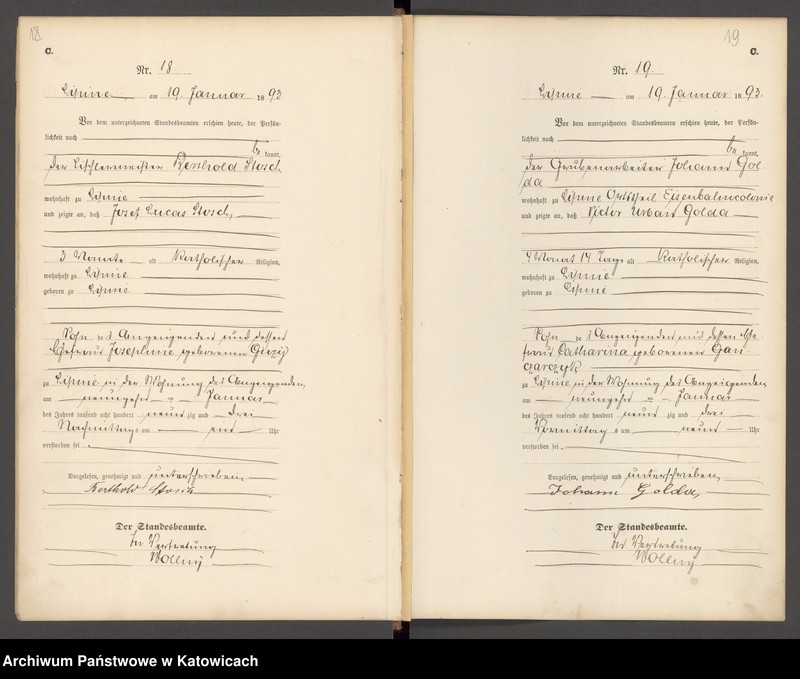 18
C.
Nr. 18
Lipine am 19. Januar 1893
Vor dem unterzeichneten Standesbeamten erschien heute, der Persön-
lichkeit nach
be kannt,
der Tischlermeister Berthold Stosch
wohnhaft zu Lipine
und zeigte an, daß Josef Lucas Stosch,
3 Monate alt Katholischer Religion,
wohnhaft zu Lipine
geboren zu Lipine
Sohn des Anzeigenden und dessen
Ehefrau Josephine geborenen
zu Lipine in der Wohnung des Anzeigenden,
am neunzehn ten Januar
des Jahres tausend acht hundert neun zig und drei
Nachmittags um ein Uhr
verstorben sei
Vorgelesen, genehmigt und unterschrieben
Berthold Stosch
Der Standesbeamte.
In Vertretung
Wollny
19
C.
Nr. 19.
Lipine am 19. Januar 1893.
Vor dem unterzeichneten Standesbeamten erschien heute, der Persön-
lichkeit nach
be kannt,
der Grubenarbeiter Johann Gol-
da
wohnhaft zu Lipine Ortstheil Eisenbahncolonie
und zeigte an, daß Victor Urban Golda
4 Monat 14 Tage alt Katholischer Religion,
wohnhaft zu Lipine
geboren zu Lipine
Sohn des Anzeigenden und dessen Ehe-
frau Catharina geborenen Gan-
czarczyk
zu Lipine in der Wohnung des Anzeigenden
am neunzehn ten Januar
des Jahres tausend acht hundert neun zig und drei
Vormittags um neun Uhr
verstorben sei
Vorgelesen, genehmigt und unterschrieben
Johann Golda,
Der Standesbeamte.
In Vertretung
Wollny
Archiwum Państwowe w Katowicach